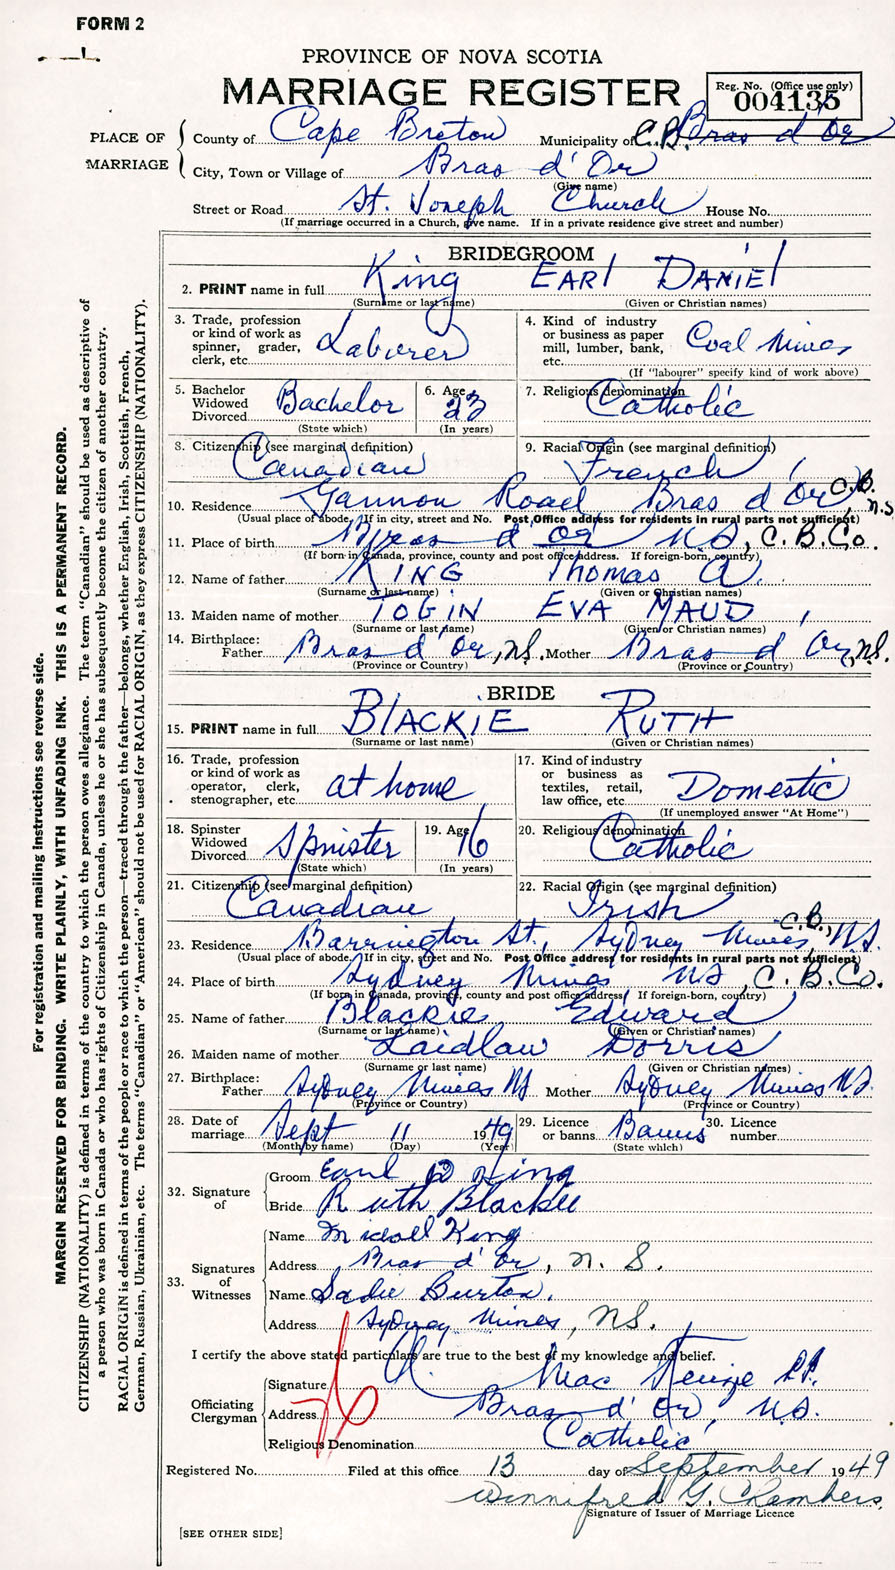 FORM 2
PROVINCE OF NOVA SCOTIA
MARRIAGE REGISTER
Reg. No. (Office use only)
004135
PLACE OF MARRIAGE
County of Cape Breton Municipality of C.B. Bras d'Or
City, Town or Village of Bras d'Or
(Give name)
Street or Road St. Joseph Church House No.
(If marriage occurred in a Church, give name. If in a private residence give street and number)
BRIDEGROOM
2. PRINT name in full King EARl DANiEl
(Surname or last name) (Given or Christian names)
3. Trade, profession or kind of work as spinner, grader, clerk, etc. Laborer
4. Kind of industry or business as paper mill, lumber, bank, etc. Coal Mines
(If "labourer" specify kind of work above)
5. Bachelor Widowed Divorced Bachelor
(State which)
6. Age 23
(In years)
7. Religious denomination Catholic
8. Citizenship (see marginal definition) Canadian
9. Racial Origin (see marginal definition) French
10. Residence Gannon Road Bras d'Or C.B. N.S.
(Usual place of abode. If in city, street and No. Post Office address for residents in rural parts not sufficient)
11. Place of birth Bras d'Or N.S, C.B.Co.
(If born in Canada, province, county and post office address. If foreign-born, country)
12. Name of father KING Thomas A.
(Surname or last name) (Given or Christian names)
13. Maiden name of mother TOGiN EVA MAUD
(Surname or last name) (Given or Christian names)
14. Birthplace: Father Bras d'Or, N.S. Mother Bras d'Or, N.S.
(Province or Country) (Province or Country)
BRIDE
15. PRINT name in full BlACKiE RUTH
(Surname or last name) (Given or Christian names)
16. Trade, profession or kind of work as operator, clerk, stenographer, etc. at home
17. Kind of industry or business as textiles, retail, law office, etc. Domestic
(If unemployed answer "At Home")
18. Spinster Widowed Divorced Spinister
(State which)
19. Age 16
(In years)
20. Religious denomination Catholic
21. Citizenship (see marginal definition) Canadian
22. Racial Origin (see marginal definition) Irish
23. Residence Barrington St., Sydney Mines, C.B., N.S.
(Usual place of abode. If in city, street and No. Post Office address for residents in rural parts not sufficient)
24. Place of birth Sydney Mines NS, C.B.Co.
(If born in Canada, province, county and post office address. If foreign-born, country)
25. Name of father Blackie Edward
(Surname or last name) (Given or Christian names)
26. Maiden name of mother Laidlaw Dorris
(Surname or last name) (Given or Christian names)
27. Birthplace: Father Sydney Mines NS Mother Sydney Mines N.S.
(Province or Country) (Province or Country)
28. Date of marriage Sept 11 1949
(Month by name) (Day) (Year)
29. Licence or banns Banns
(State which)
30. Licence number
32. Signature of
Groom Earl D King
Bride Ruth Blackie
33. Signatures of Witnesses
Name King
Address Bras d'Or, N.S.
Name Sadie Burton.
Address Sydney Mines, NS.
I certify the above stated particulars are true to the best of my knowledge and belief.
Officiating Clergyman
Signature Mac P.P.
Address Bras d'Or, N.S.
Religious Denomination Catholic
Registered No. Filed at this office 13 day of September 1949
Winnifred G. Chambers
Signature of Issuer of Marriage Licence
[SEE OTHER SIDE]
For registration and mailing instructions see reverse side.
MARGIN RESERVED FOR BINDING. WRITE PLAINLY, WITH UNFADING INK. THIS IS A PERMANENT RECORD.
CITIZENSHIP (NATIONALITY) is defined in terms of the country to which the person owes allegiance. The term "Canadian" should be used as descriptive of
a person who was born in Canada or who has rights of Citizenship in Canada, unless he or she has subsequently become the citizen of another country.
RACIAL ORIGIN is defined in terms of the people or race to which the person—traced through the father—belongs, whether English, Irish, Scottish, French,
German, Russian, Ukrainian, etc. The terms "Canadian" or "American" should not be used for RACIAL ORIGIN, as they express CITIZENSHIP (NATIONALITY).